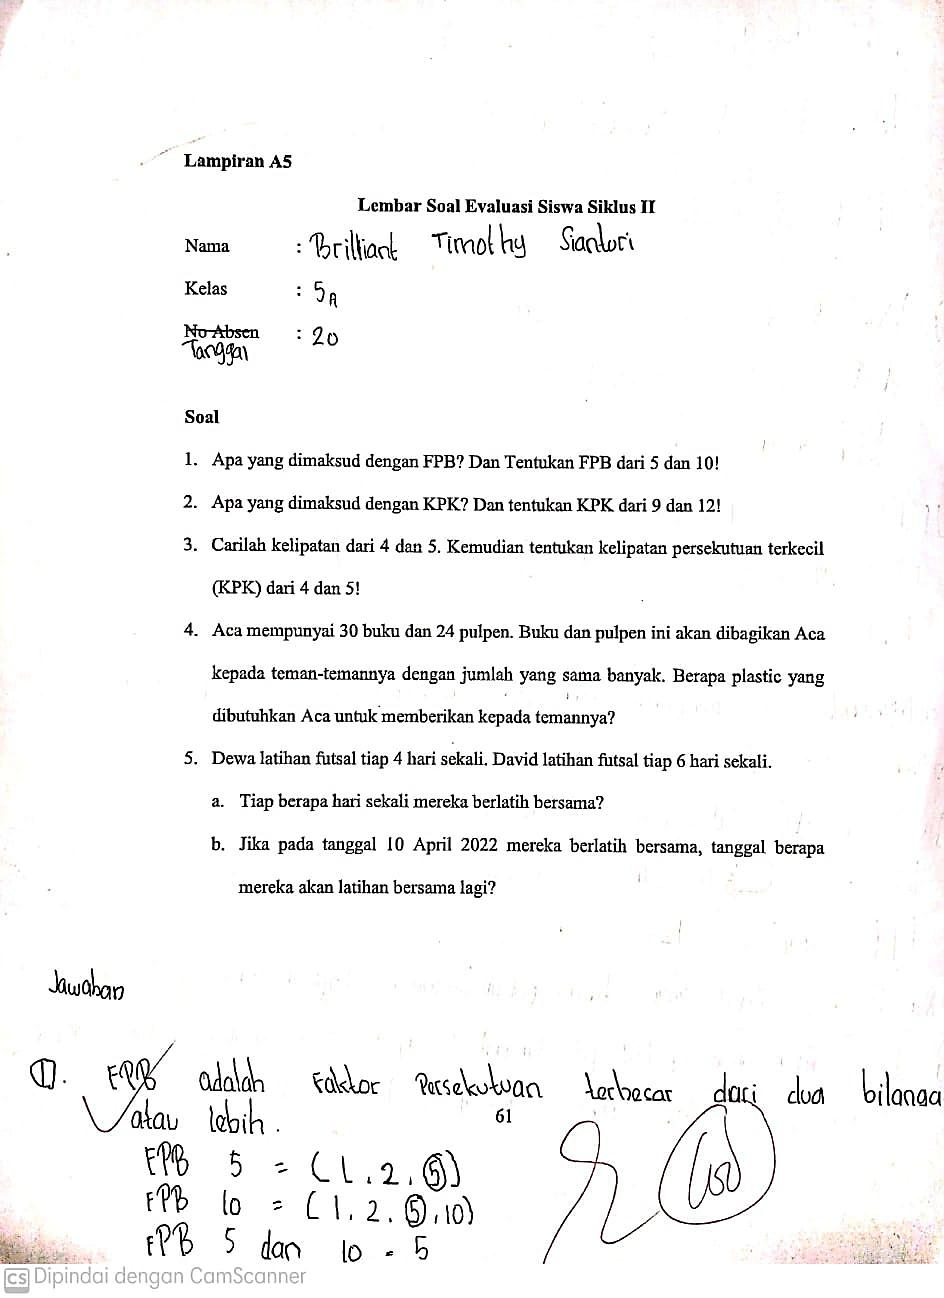 Lampiran A5
Lembar Soal Evaluasi Siswa Siklus II
Nama : Brilliant Timothy Siantori
Kelas : 5A
No Absen : 20
Tanggal
Soal
1. Apa yang dimaksud dengan FPB? Dan Tentukan FPB dari 5 dan 10!
2. Apa yang dimaksud dengan KPK? Dan tentukan KPK dari 9 dan 12!
3. Carilah kelipatan dari 4 dan 5. Kemudian tentukan kelipatan persekutuan terkecil
(KPK) dari 4 dan 5!
4. Aca mempunyai 30 buku dan 24 pulpen. Buku dan pulpen ini akan dibagikan Aca
kepada teman-temannya dengan jumlah yang sama banyak. Berapa plastic yang
dibutuhkan Aca untuk memberikan kepada temannya?
5. Dewa latihan futsal tiap 4 hari sekali. David latihan futsal tiap 6 hari sekali.
a. Tiap berapa hari sekali mereka berlatih bersama?
b. Jika pada tanggal 10 April 2022 mereka berlatih bersama, tanggal berapa
mereka akan latihan bersama lagi?
Jawaban
1. FPB adalah Faktor Persekutuan terbecar dari dua bilanga
atau lebih.
61
FPB 5 = (1, 2, 5)
FPB 10 = (1, 2, 5, 10)
FPB 5 dan 10 = 5
CS Dipindai dengan CamScanner